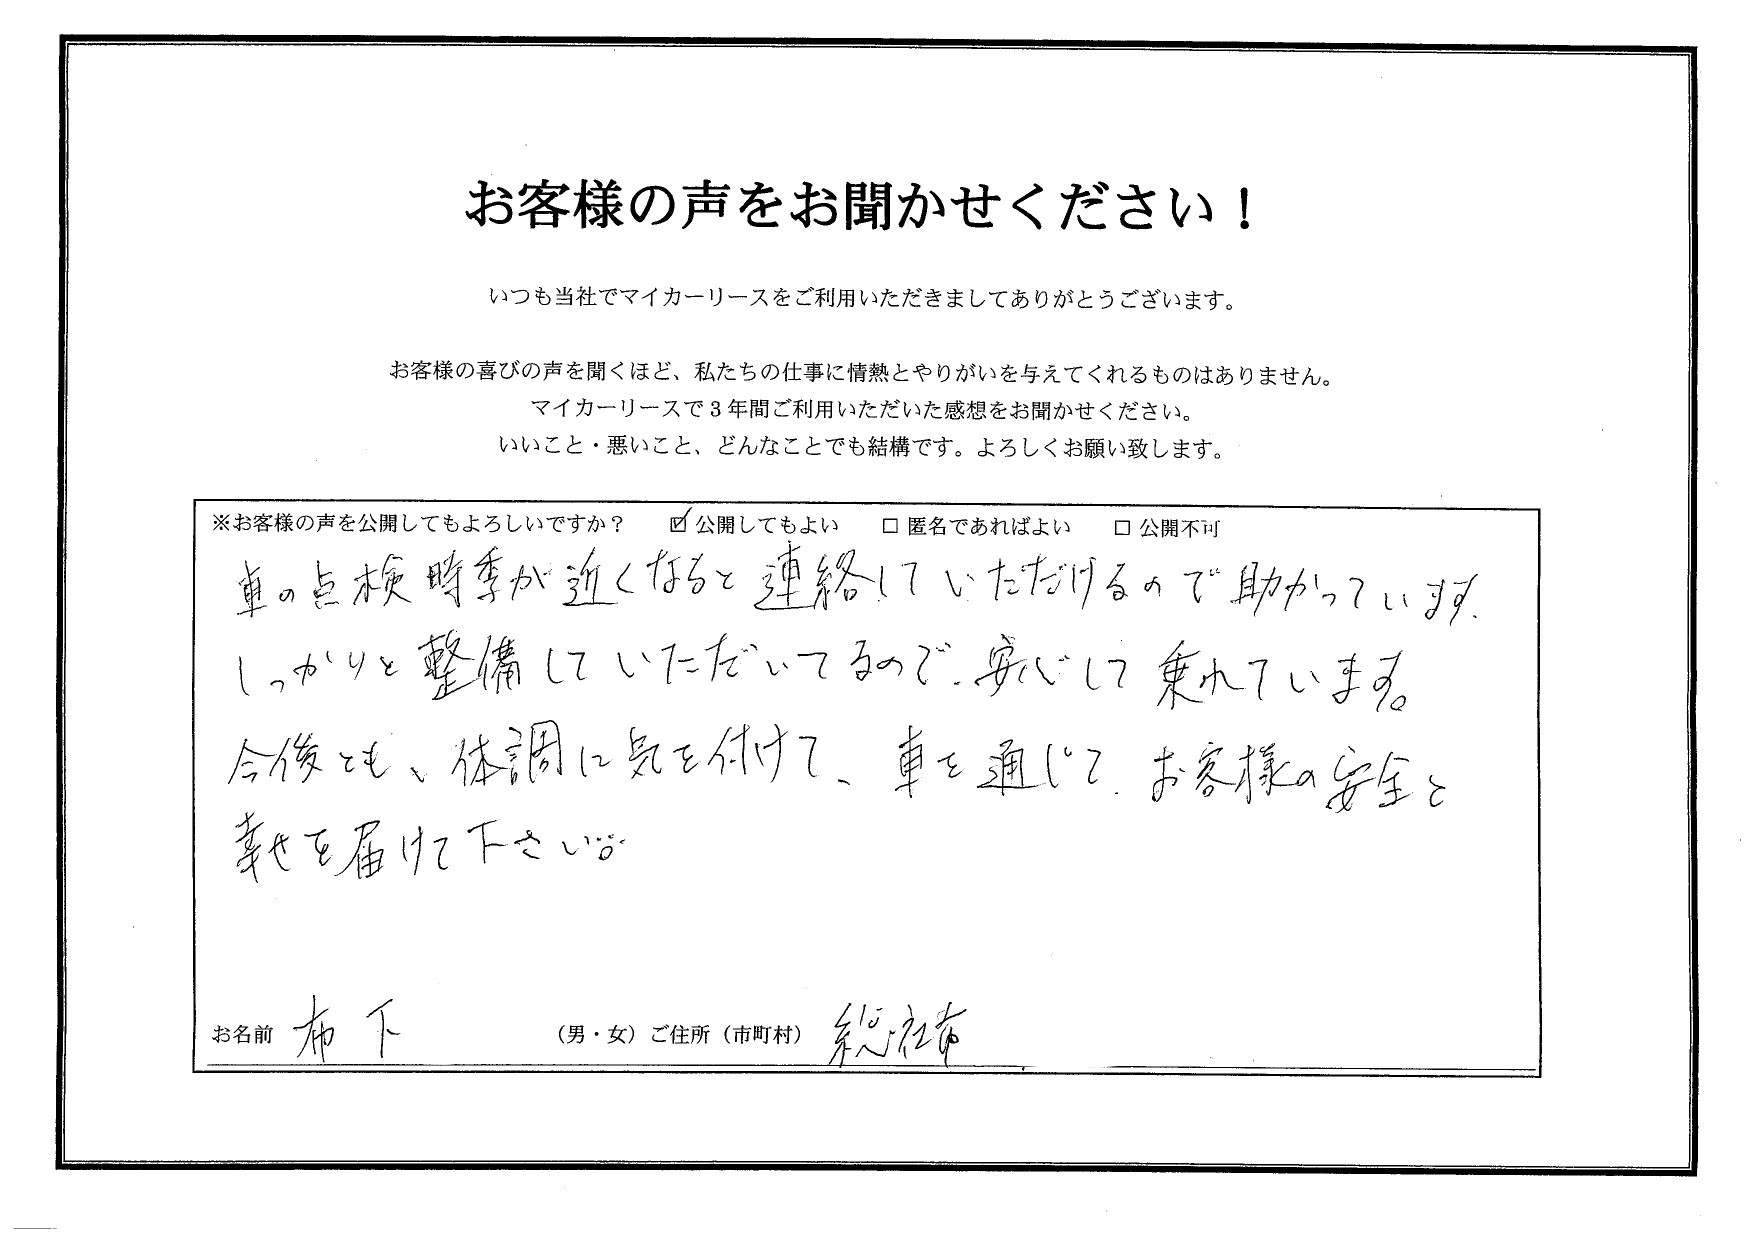 お客様の声をお聞かせください！
いつも当社でマイカーリースをご利用いただきましてありがとうございます。
お客様の喜びの声を聞くほど、私たちの仕事に情熱とやりがいを与えてくれるものはありません。
マイカーリースで３年間ご利用いただいた感想をお聞かせください。
いいこと・悪いこと、どんなことでも結構です。よろしくお願い致します。
※お客様の声を公開してもよろしいですか？ ☑ 公開してもよい □ 匿名であればよい □ 公開不可
車の点検時季が近くなると連絡していただけるので助かっています.
しっかりと整備していただいてるので、安心して乗れています。
今後とも、体調に気を付けて、車を通じて、お客様の安全と
幸せを届けて下さい。
お名前 布下 （男・女）ご住所（市町村） 総社市